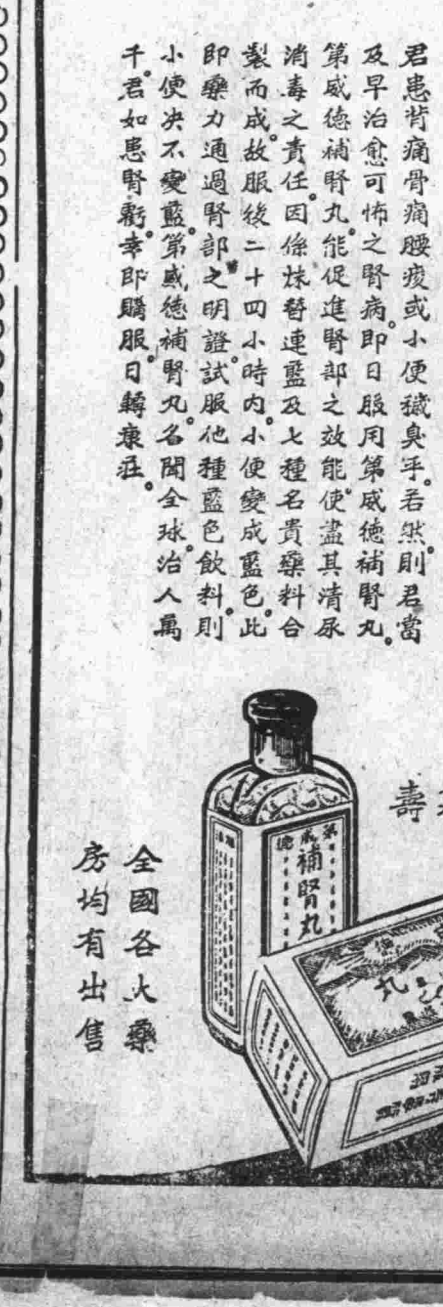 君患背痛骨痛腰痠或小便穢臭乎。若然。則君當
及早治愈可怖之腎病。即日服用第威德補腎丸。
第威德補腎丸。能促進腎部之效能。使盡其清尿
消毒之責任。因係替連藍及七種名貴藥料合
製而成。故服後二十四小時內。小便變成藍色。此
即藥力通過腎部之明證。試服他種藍色飲料。則
小便决不變藍。第威德補腎丸。名聞全球。治人萬
千。君如患腎虧。幸即購服。日轉康莊。
壽
第威德
補腎丸
丸
全國各大藥
房均有出售